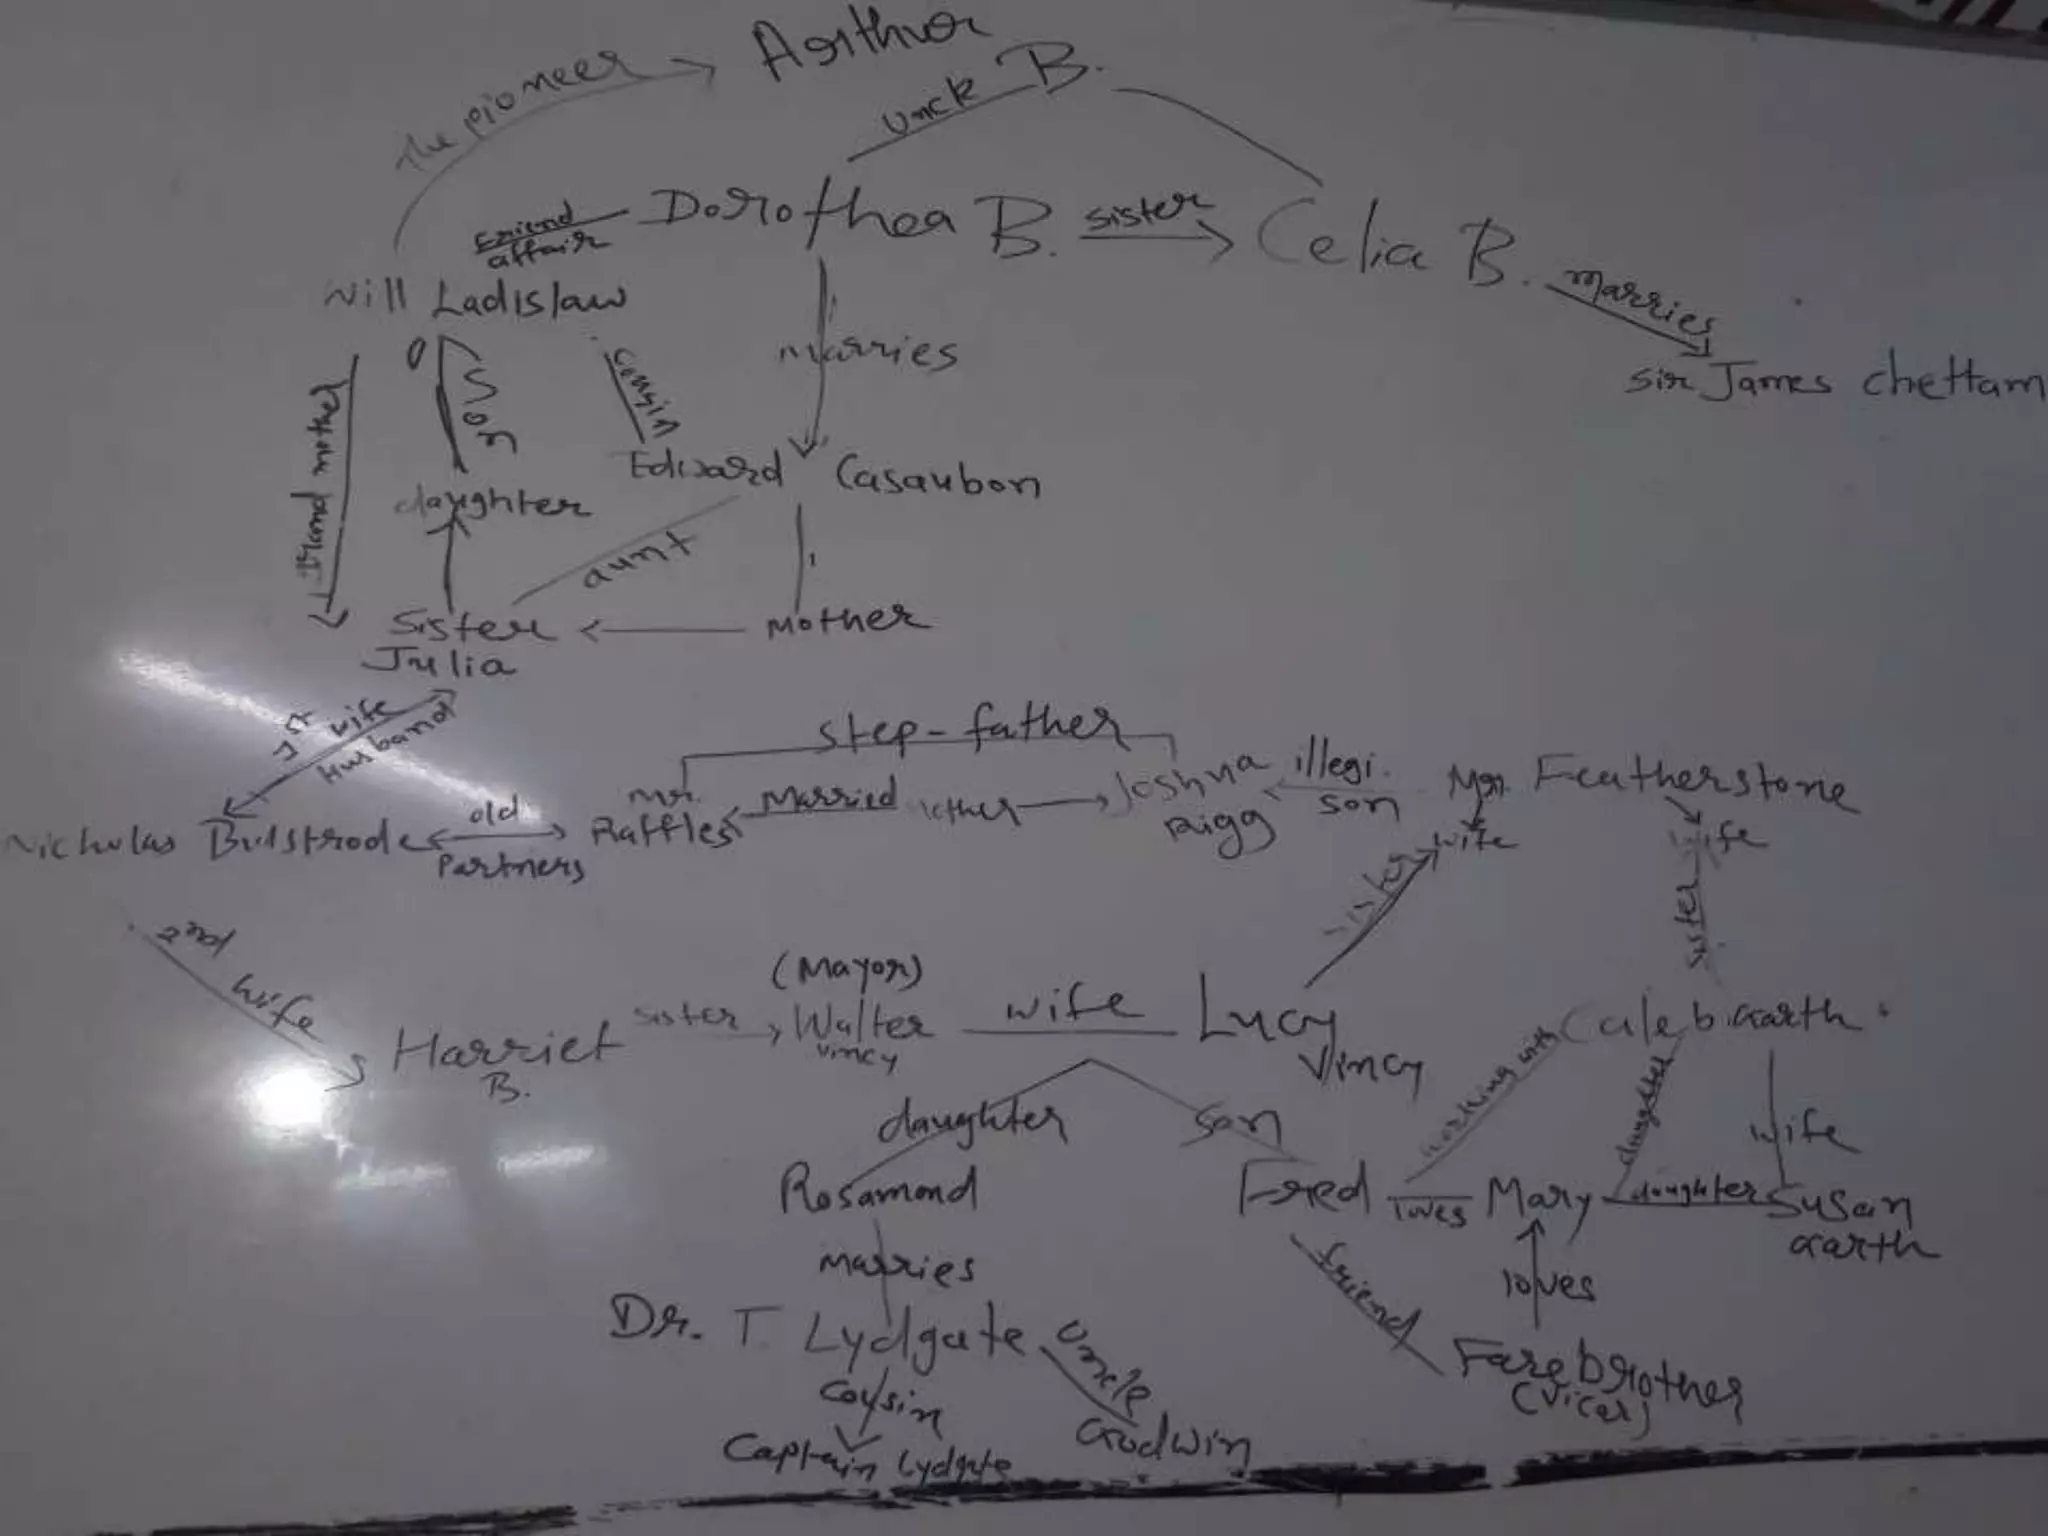 Arthur
B.
the pioneer
Uncle
Dorothea B.
sister
Celia B.
marries
Sir James Chettam
Friend
affair
Will Ladislaw
son
cousin
marries
Grand mother
Edward Casaubon
daughter
aunt
Sister
Julia
Mother
1st wife
Husband
step-father
Nicholas Bulstrode
old
Partners
Mr.
Raffles
Married
Joshua
Rigg
illegi.
son
Mr. Featherstone
wife
wife
sister
sister
2nd wife
Harriet
B.
sister
(Mayor)
Walter
Vincy
wife
Lucy
Vincy
Caleb Garth
working with
daughter
wife
daughter
son
Rosamond
Fred
loves
Mary
daughter
Susan
Garth
marries
friend
loves
Dr. T Lydgate
Uncle
Godwin
Farebrother
(Vicar)
cousin
Captain Lydgate